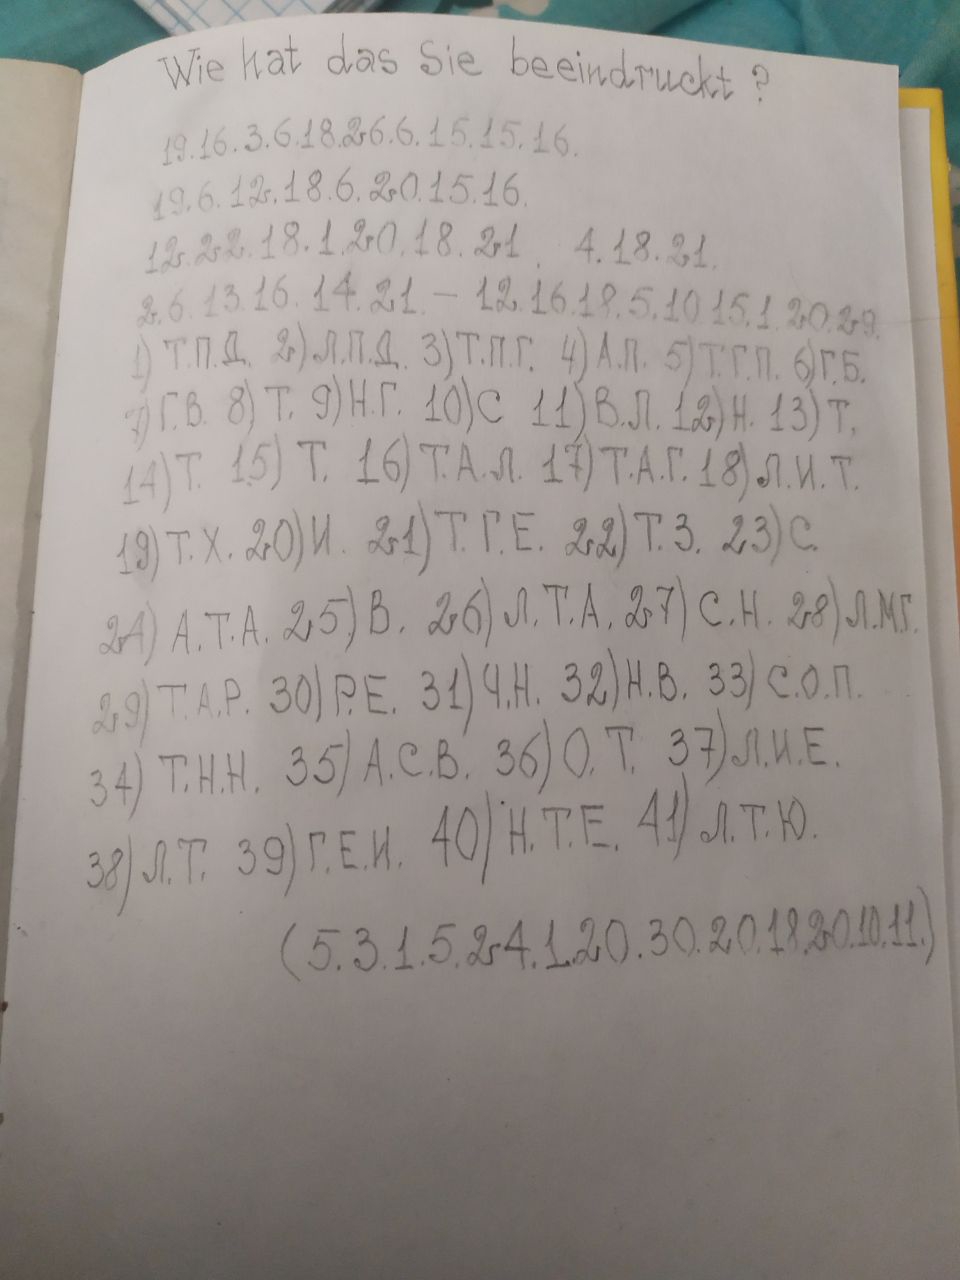 Wie hat das Sie beeindruckt?
19.16.3.6.18.26.6.15.15.16.
19.6.12.18.6.20.15.16.
12.22.18.1.20.18.21. 4.18.21.
2.6.13.16.14.21. – 12.16.18.5.10.15.1.20.29.
1) Т.П.Д. 2) Л.П.Д. 3) Т.П.Г. 4) А.П. 5) Т.Г.П. 6) Г.Б.
7) Г.В. 8) Т. 9) Н.Г. 10) С 11) В.Л. 12) Н. 13) Т.
14) Т. 15) Т. 16) Т.А.Л. 17) Т.А.Г. 18) Л.И.Т.
19) Т.Х. 20) И. 21) Т.Г.Е. 22) Т.З. 23) С.
24) А.Т.А. 25) В. 26) Л.Т.А. 27) С.Н. 28) Л.М.Г.
29) Т.А.Р. 30) Р.Е. 31) Ч.Н. 32) Н.В. 33) С.О.П.
34) Т.Н.Н. 35) А.С.В. 36) О.Т. 37) Л.И.Е.
38) Л.Т. 39) Г.Е.И. 40) Н.Т.Е. 41) Л.Т.Ю.
(5.3.1.5.24.1.20.30.20.18.20.10.11.)